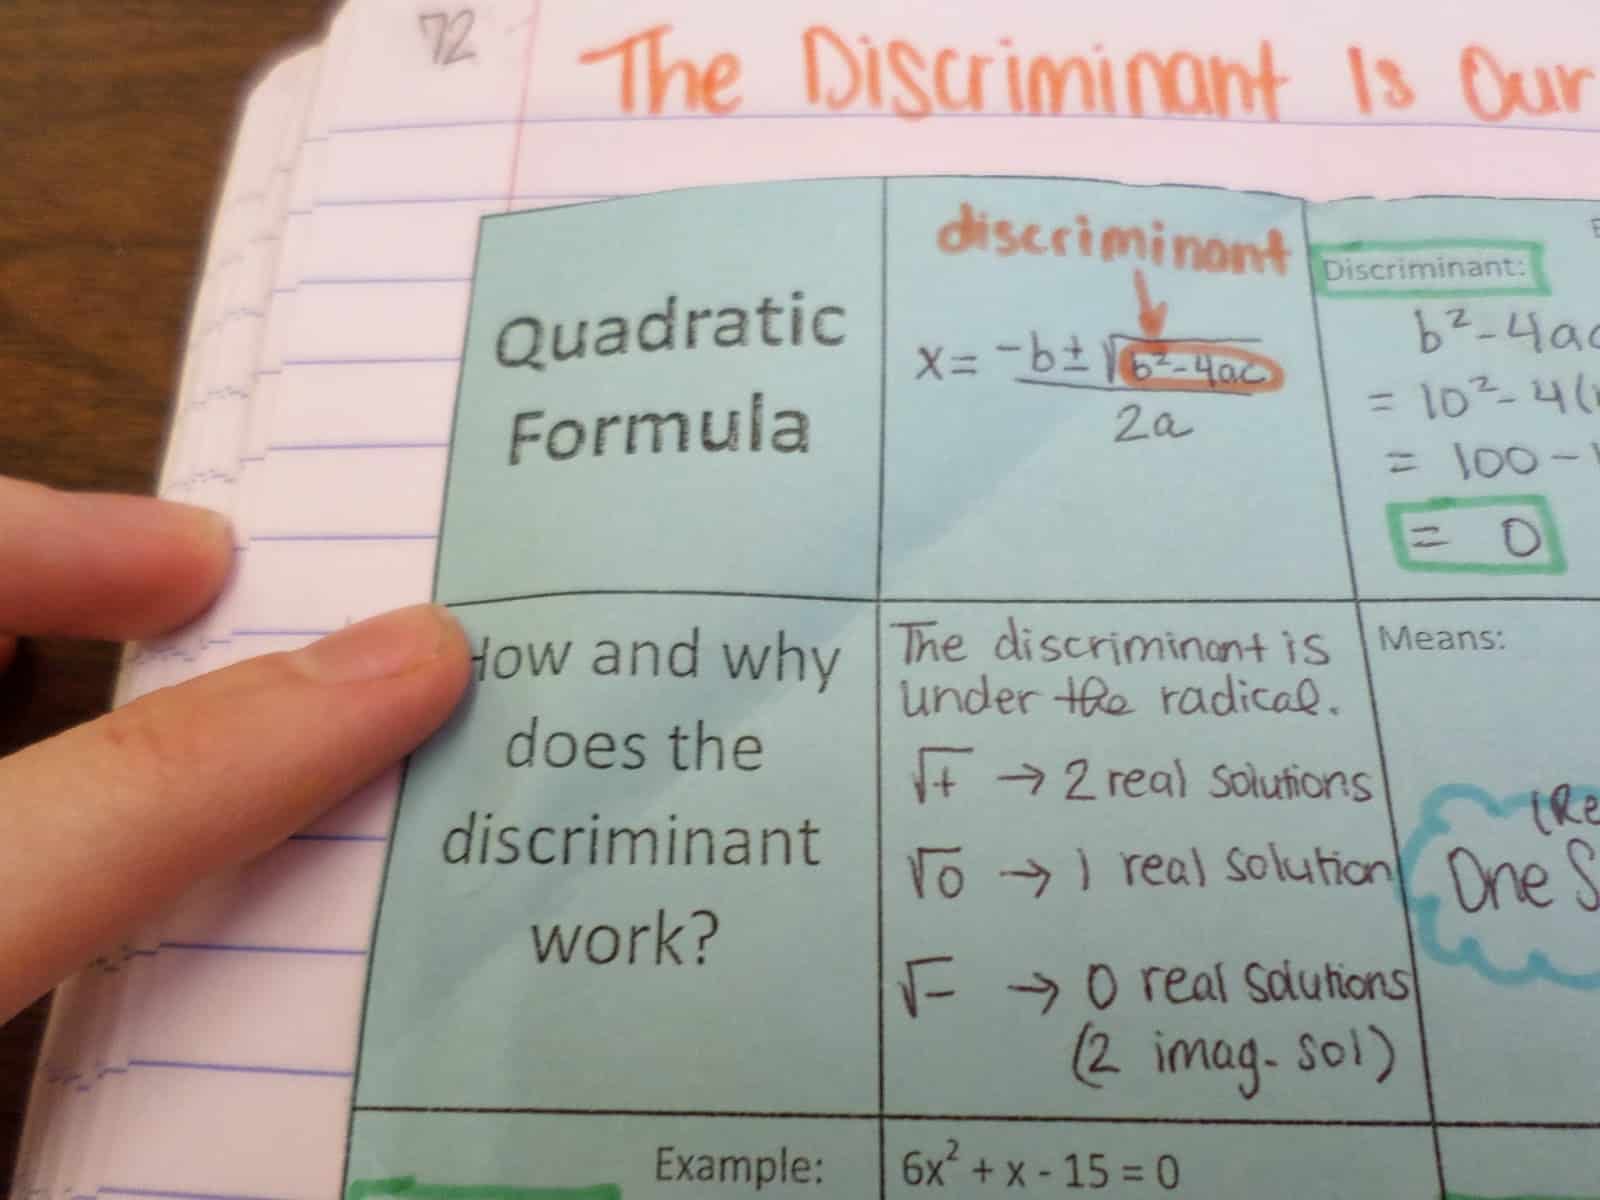 72
The Discriminant Is Our
Quadratic
Formula
discriminant
x = -b ± √b² - 4ac
2a
Discriminant:
b² - 4ac
= 10² - 4(
= 100 -
= 0
How and why
does the
discriminant
work?
The discriminant is
under the radical.
√+ → 2 real solutions
√0 → 1 real solution
√- → 0 real solutions
(2 imag. sol)
Means:
(Re
One S
Example:
6x² + x - 15 = 0